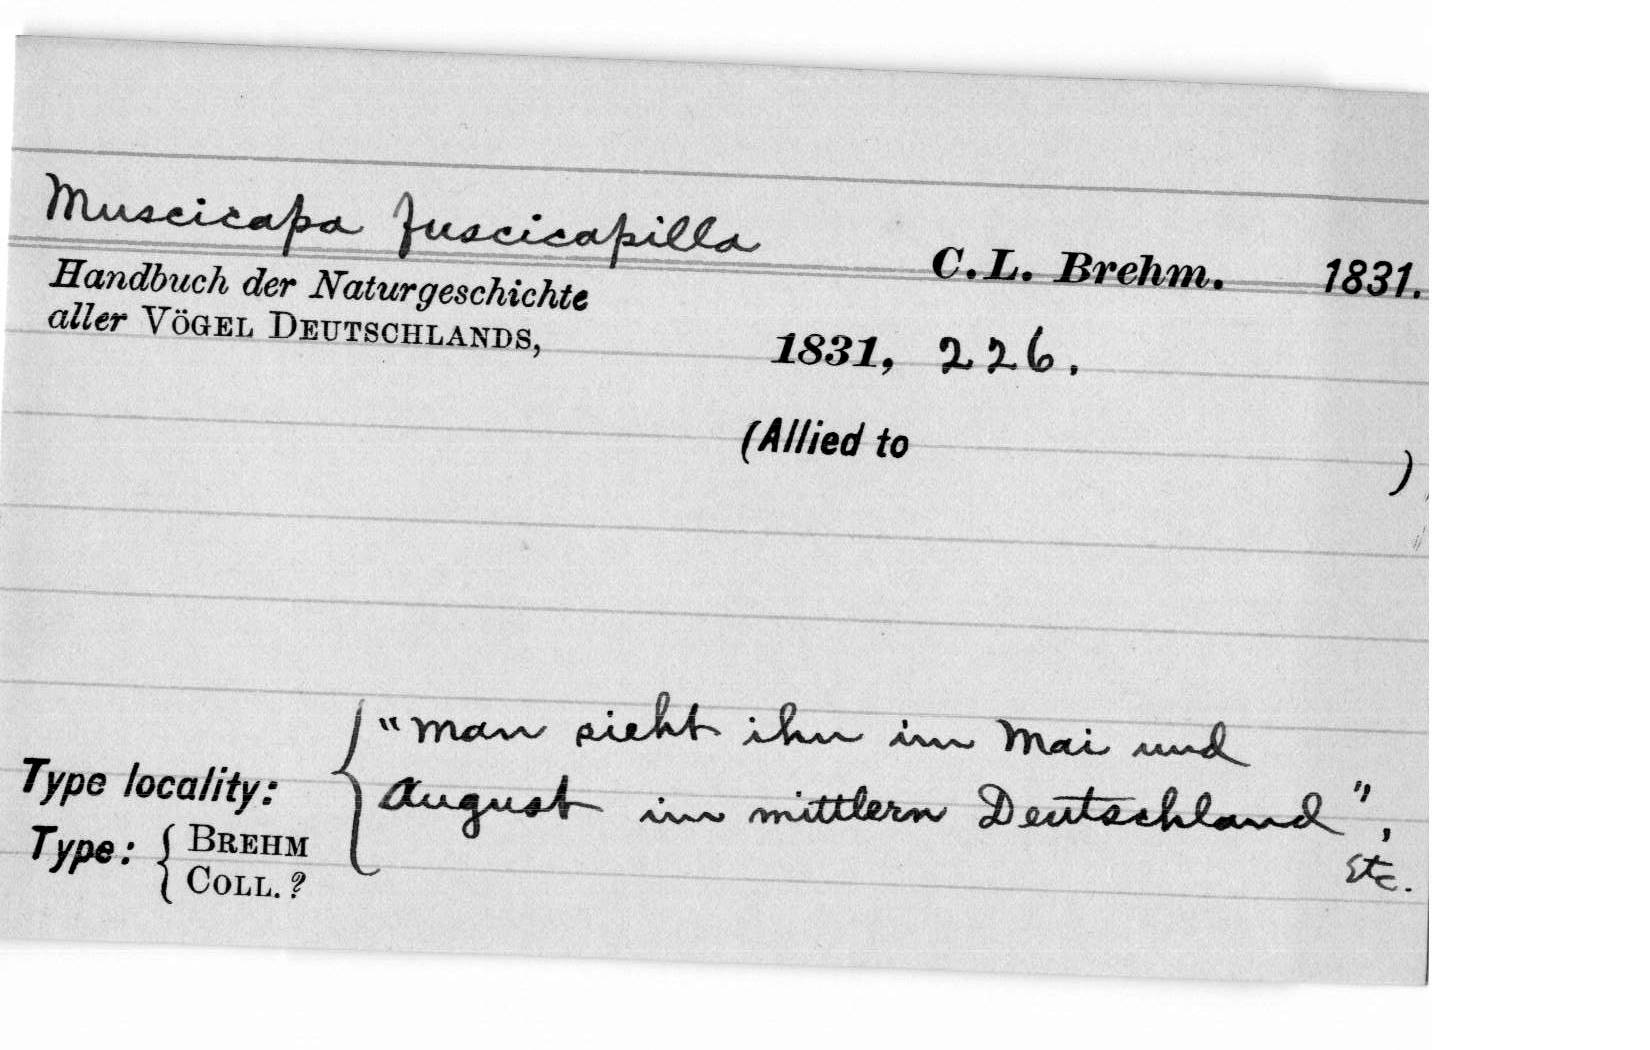 Muscicapa fuscicapilla
C. L. Brehm. 1831.
Handbuch der Naturgeschichte
aller VÖGEL DEUTSCHLANDS,
1831, 226.
(Allied to )
"Man sieht ihn im Mai und
August im mittlern Deutschland",
Etc.
Type locality:
Type: { BREHM
COLL. ?